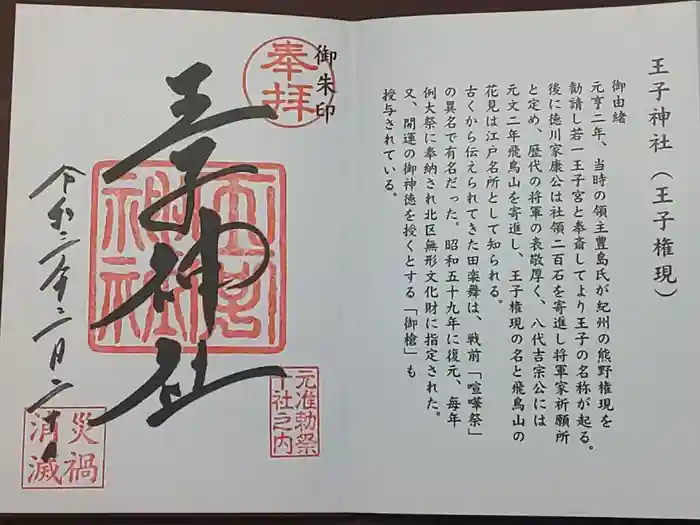 王子神社(王子権現)
御由緒
元亨二年、当時の領主豊島氏が紀州の熊野権現を
勧請し若一王子宮と奉斎してより王子の名称が起る。
後に徳川家康公は社領二百石を寄進し将軍家祈願所
と定め、歴代の将軍の表敬厚く、八代吉宗公には
元文二年飛鳥山を寄進し、王子権現の名と飛鳥山の
花見は江戸名所として知られる。
古くから伝えられてきた田楽舞は、戦前「喧嘩祭」
の異名で有名だった。昭和五十九年に復元、毎年
例大祭に奉納され北区無形文化財に指定された。
又、開運の御神徳を授くとする「御槍」も
授与されている。
御朱印
奉拝
王子神社
王子神社
元准勅祭
十社之内
令和三年二月二十
災禍
消滅